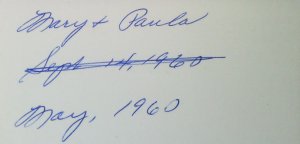 Mary & Paula
Sept 14, 1960
May, 1960